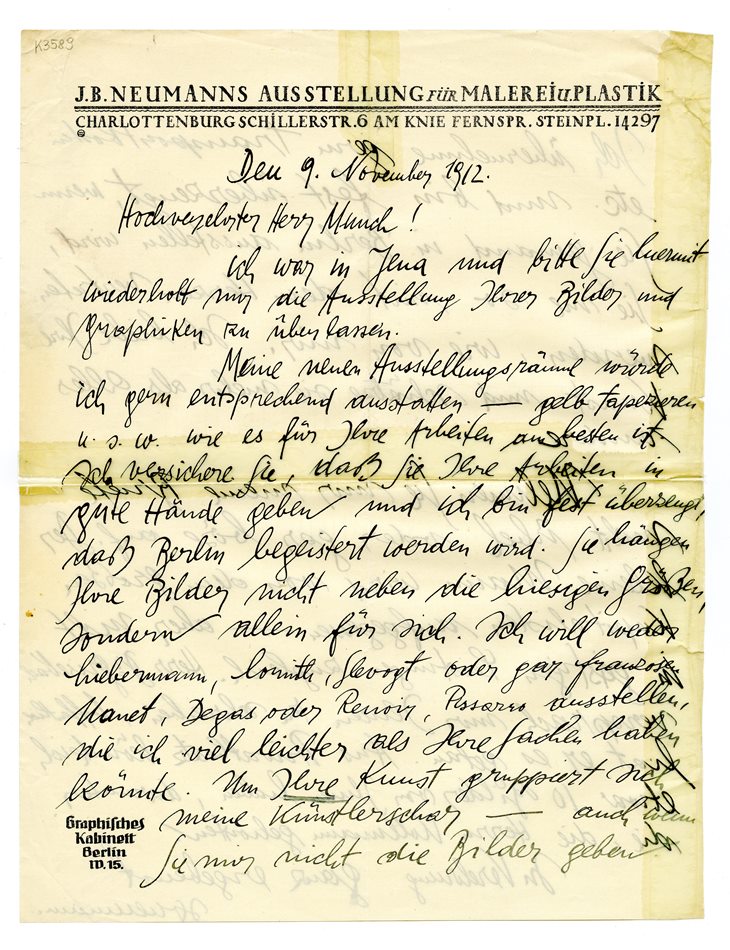 K3589
J.B. NEUMANNS AUSSTELLUNG FÜR MALEREI U. PLASTIK
CHARLOTTENBURG SCHILLERSTR. 6 AM KNIE FERNSPR. STEINPL. 14297
Den 9. November 1912.
Hochverehrter Herr Munch!
ich war in Jena und bitte Sie hiermit
wiederholt mir die Ausstellung Ihrer Bilder und
Graphiken zu überlassen.
Meine neuen Ausstellungsräume würde
ich gern entsprechend ausstatten — gelb tapezieren
u. s. w. wie es für Ihre Arbeiten am besten ist.
Ich versichere Sie, daß Sie Ihre Arbeiten in
gute Hände geben und ich bin fest überzeugt,
daß Berlin begeistert werden wird. Sie hängen
Ihre Bilder nicht neben die hiesigen Größen,
sondern allein für sich. Ich will weder
Liebermann, Corinth, Slevogt oder gar Franzosen
Manet, Degas oder Renoir, Pissarro ausstellen,
die ich viel leichter als Ihre Sachen haben
könnte. Um Ihre Kunst gruppiert sich
meine Künstlerschar — auch wenn
Sie mir nicht die Bilder geben
Graphisches
Kabinett
Berlin
W. 15.